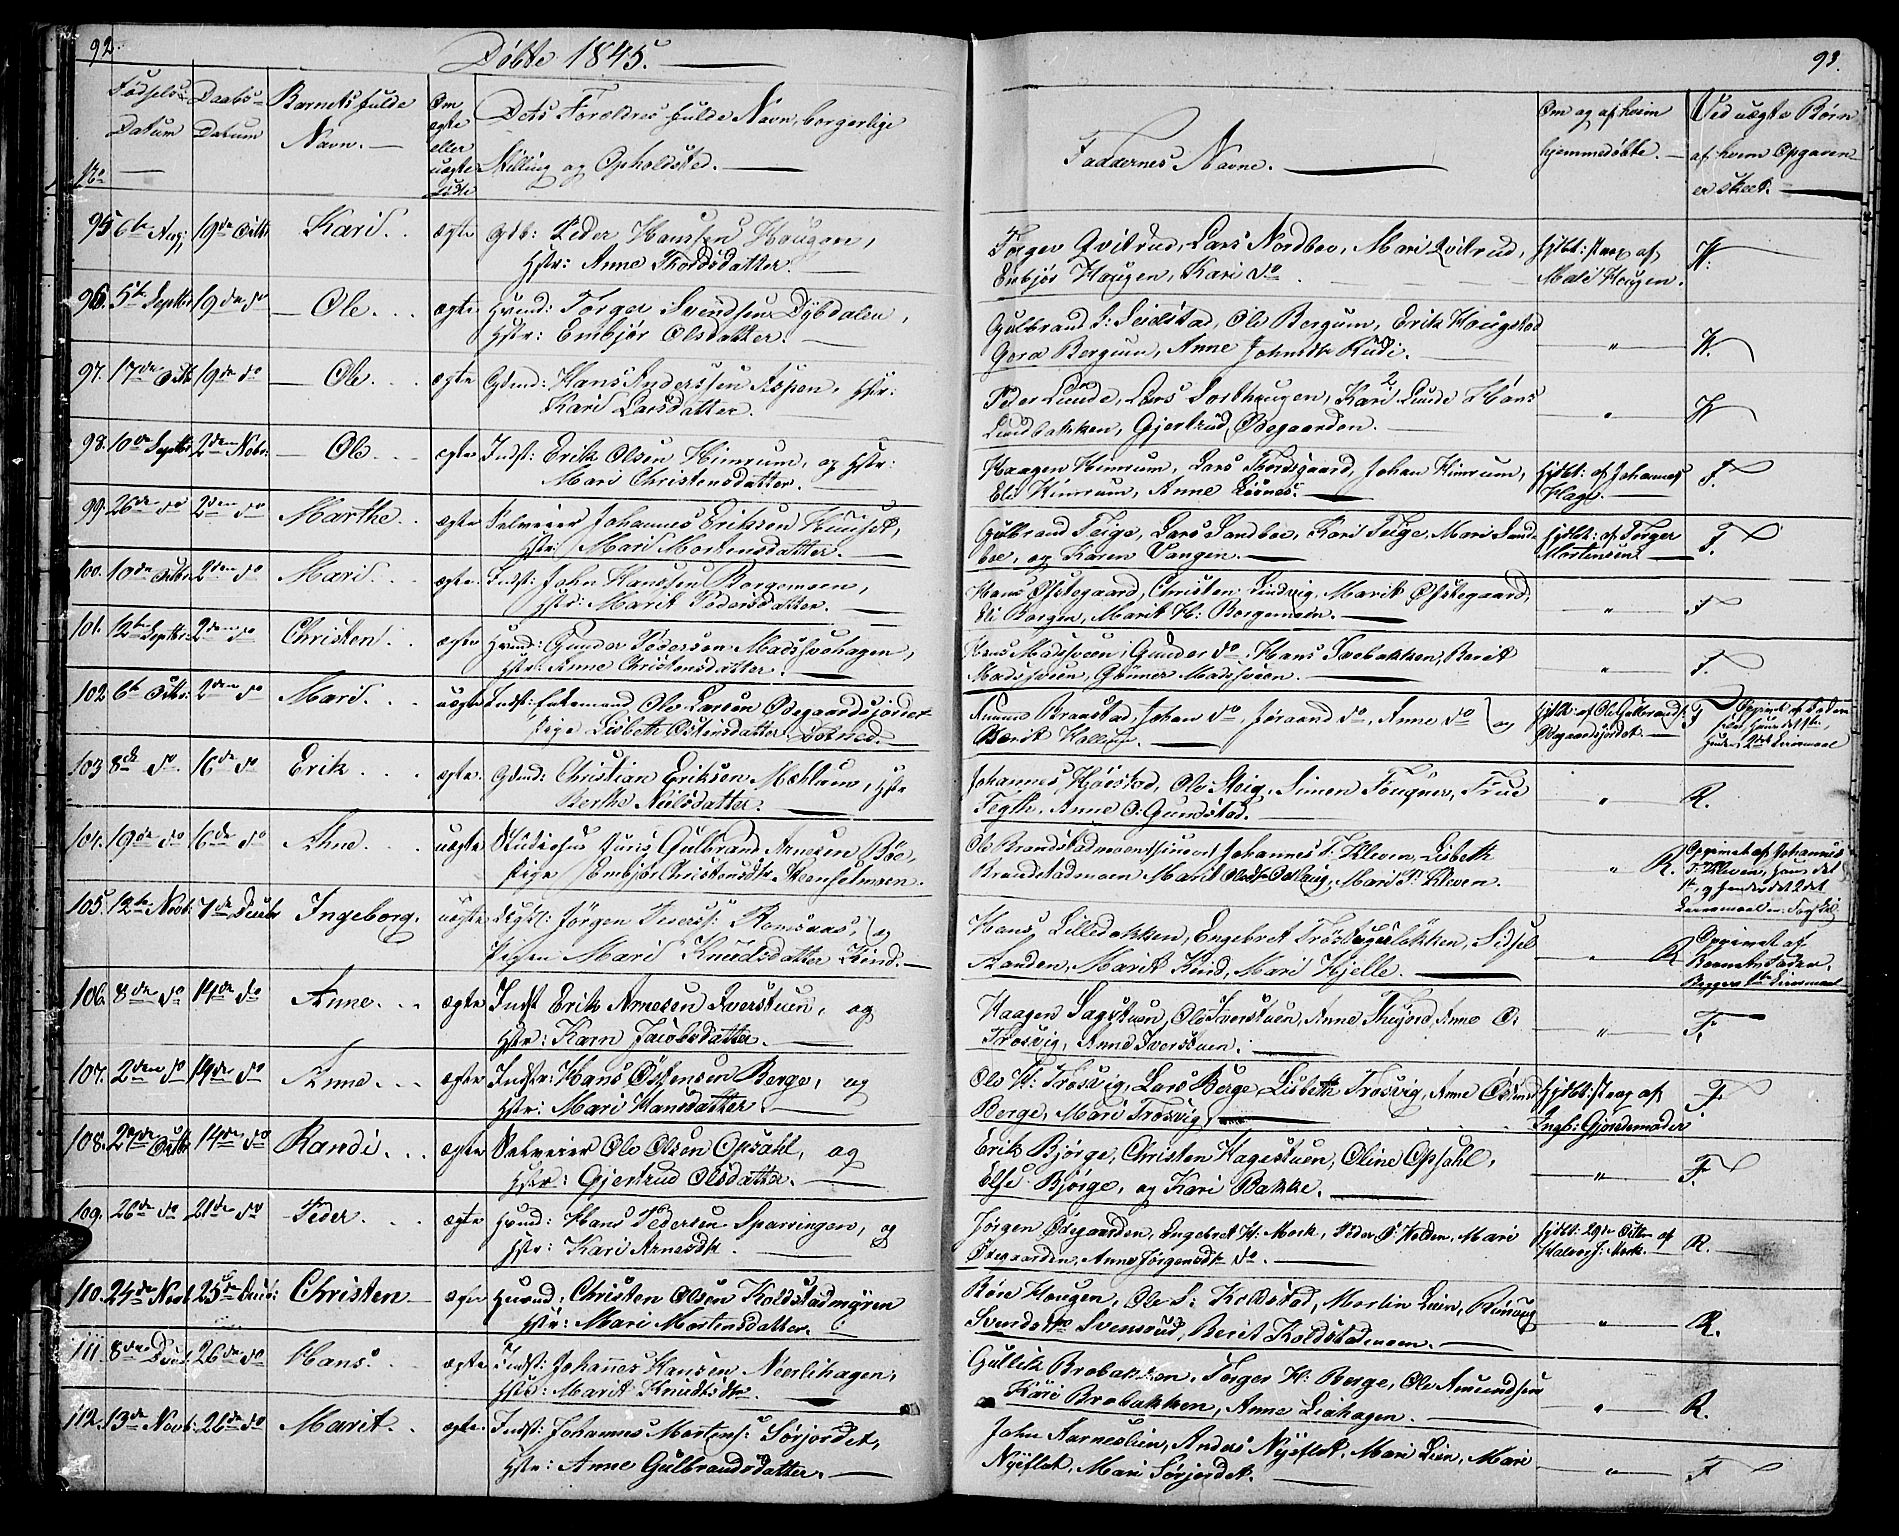 92.
Døbte 1845.
Fødsels Datum
Daabs Datum
Barnets fulde Navn.
Om ægte eller uægte født
Dets Foreldres fulde Navn, borgerlige
Stilling og Opholdsted.
No
95 6te Aug: 19de Octbr Kari. ægte Gdb: Peder Hanssen Haugen,
Hstr: Anne Thordsdatter.
96. 5te Septbr 19de do Ole. ægte Hmd: Torger Svendsen Dybdalen,
Hstr: Embjør Olsdatter.
97. 17de Octb 19de do Ole. ægte Gdmd: Hans Anderssen Aspen, Hstr:
Kari Larsdatter.
98. 10de Septbr 2den Novbr: Ole ægte Indst: Erik Olsen Himrum, og Hstr:
Mari Christensdatter.
99. 26de do 2den do Marthe. ægte Selveier Johannes Eriksen
Hstr: Mari Mortensdatter.
100. 10de Octbr 2den do Mari. ægte Indst: John Hanssen Borgemoen,
Hstr: Marit Pedersdatter.
101. 12te Septbr 2den do Christen. ægte Hmd: Gunder Pedersen Madssvehagen,
Hstr: Anne Christensdatter.
102 6te Octbr: 2den do Mari. uægte Indst: Enkemand Ole Larsen Ødegaardsjordet
Pige Lisbeth Østensdatter
103 8de do. 16de do Erik ægte. Gdmd: Christian Eriksen Mæhlum, Hstr
Berthe Nielsdatter.
104. 19de do 16de do Ane. uægte Studiosus Juris Gulbrand Arnesen Böe,
Pige Embjør Christensdtr
105. 12te Novb: 7de Decbr Ingeborg. uægte Jørgen Romsaas, og
Pigen Mari Knudsdatter Kind.
106. 8de do 14de do Anne. ægte Indst Erik Arnesen Sverstuen, og
Hstr: Karn Jacobsdatter.
107. 2den do 14de do Anne. ægte Indst: Hans Østensen Berge, og
Hstr: Mari Hansdatter.
108. 27de Octbr 14de do Randi. ægte Selveier Ole Olsen Opsahl, og
Hstr: Gjertrud Olsdatter.
109. 26de do 21de do Peder. ægte Hmd: Hans Pedersen Sparringen, og
Hstr: Kari Arnesdtr.
110. 24de Novb 25de Decb: Christen ægte Hmd: Christen Olsen Koldstadmÿren
Hstr: Mari Mortensdatter.
111. 8de Decb. 26de do Hans. ægte Indst: Johannes Hansen Neerlihagen,
Hstr: Marit Knudsdtr.
112. 13de Novb: 26de do Marit. ægte Indst: Johannes Mortens: Sørjordet,
Hstr: Anne Gulbrandsdatter.
93.
Faddernes Navne.
Om og af hvem
hjemmedøbte.
Ved uægte Børn
af hvem Opgaven
er skeet.
Torger Qvitrud, Lars Nordboe, Mari Qvitrud, hjdbt: strax af
Embjør Haugen, Kari do Mari Haugen. K.
Gulbrand J: Seielstad, Ole Bergum, Erik Haugstad
Gora Bergum, Anne Johnsdtr Rudi. " K.
Peder Lunde, Lars Sorthaugen, Kari Lunde
Lundbakken, Gjertrud Ødegaarden. " K
Haagen Himrum, Lars Thordsgaard, Johan Himrum, hjdbt: af Johannes
Eli Himrum, Anne Løsnes. Hage. F.
Gulbrand Teige, Lars Sandboe, Kari Teige, Mari Sand- hjdbt: af Torger
boe, og Karen Vangen. Mortensen. F.
Hans Øfstegaard, Christen Lindvig, Marit Øfstegaard,
Eli Borgen, Marit H: Borgemoen. " F
Hans Madssveen, Gunder do, Hans Svebakken, Berit
Madssveen, Gønner Madssveen. " F
Amund Braastad, Johan do, Jøraand do, Anne do og hjdbt: af Ole Gulbrands:
Marit Kallerud. Ødegaardsjordet. F Opgivet af Faderen
Johannes Hjørstad, Ole Steig, Simen Fougner, Frue
Fegth, Anne O: Gunstad. " R.
Ole Brandstadmoen, Johannes T: Kleven, Lisbeth
Brandstadmoen, Mari Mari T: Kleven. " R. Opgivet af Johannes
T: Kleven,
Hans Lillebakken, Engebret Trøsvigsløkken, Sidsel
Randen, Marit Kind, Mari Kjelle. " R Opgivet af
Barnets Fader.
Haagen Sagstuen, Ole Sverstuen, Anne Anne O:
Trosvig, Anne Sverstuen. " F.
Ole H: Trosvig, Lars Berge, Lisbeth Trosvig, Anne hjdbt: strax af
Berge, Mari Trosvig. Ingb: Gjordemoder F
Erik Bjørge, Christen Hagestuen, Oline Opsahl,
Else Bjørge, og Kari Bakke. " F.
Jørgen Ødegaarden, Engebret H: Moek, Peder Mari hjdbt: 29de Octbr af
Ødegaarden, Anne Jørgensdtr do. Halvor J: Moek. R.
Røie Haugen, Ole S: Koldstad, Morten Lien, Rønnaug
Svendsdtr Svensrud, Berit Koldstadmoen. " R.
Gullik Brobakken, Torger H: Berge, Ole Amundsen
Kari Brobakken, Anne Liahagen. " R.
John Aarneslien, Anders Nÿeflot, Mari Lien, Mari
Nÿeflot, Mari Sørjordet. " F